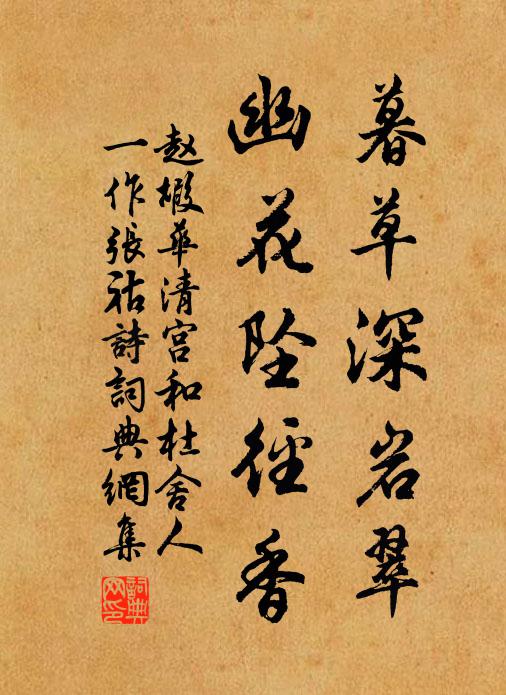 暮草深岩翠
幽花坠径香
赵嘏华清宫和杜舍人
一作張祜詩詞典網集
詞典
网印